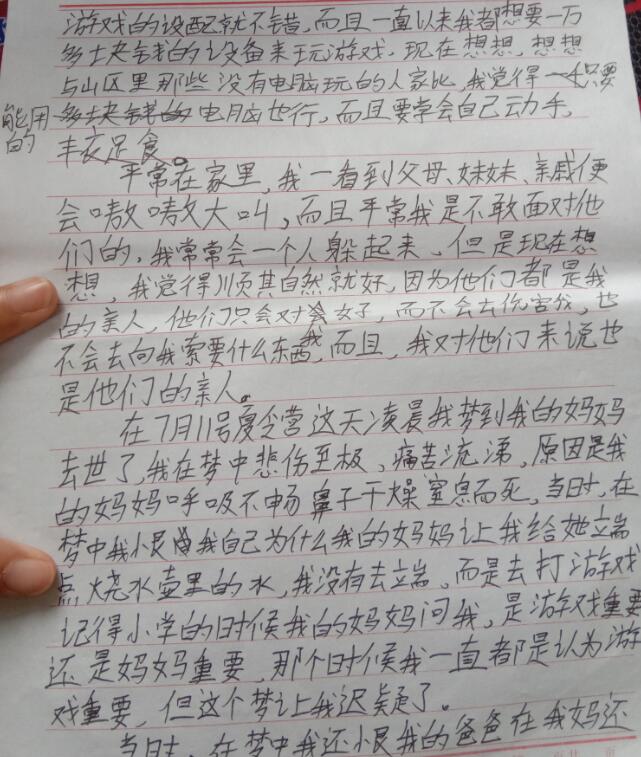 游戏的设配就不错，而且一直以来我都想要一万
多士夹钱的设备来玩游戏，现在想想，想想
与山区里那些没有电脑玩的人家比，我觉得一只要
能用的多块钱的电脑也行，而且要学会自己动手，
丰衣足食。
平常在家里，我一看到父母、妹妹、亲戚便
会嗷嗷大叫，而且平常我是不敢面对他
们的，我常常会一个人躲起来，但是现在想
想，我觉得顺其自然就好，因为他们都是我
的亲人，他们只会对我好，而不会去伤害我，也
不会去向我索要什么东西，而且，我对他们来说也
是他们的亲人。
在7月11号夏令营这天凌晨我梦到我的妈妈
去世了，我在梦中悲伤至极，痛苦流涕，原因是我
的妈妈呼吸不畅鼻子干燥窒息而死，当时，在
梦中我小恨我自己为什么我的妈妈让我给她端
点烧水壶里的水，我没有去端，而是去打游戏
记得小学的时候我的妈妈问我，是游戏重要
还是妈妈重要，那个时候我一直都是认为游
戏重要，但这个梦让我迟疑了。
当时，在梦中我还恨我的爸爸在我妈还